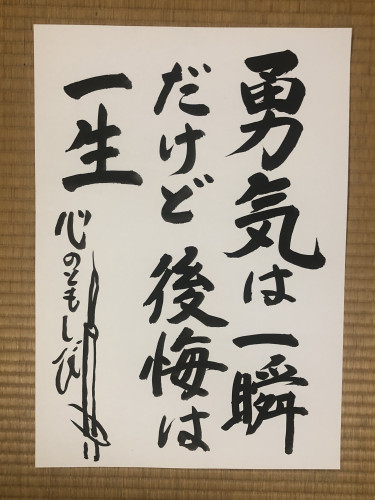 勇気は一瞬
だけど後悔は
一生
心のともしび